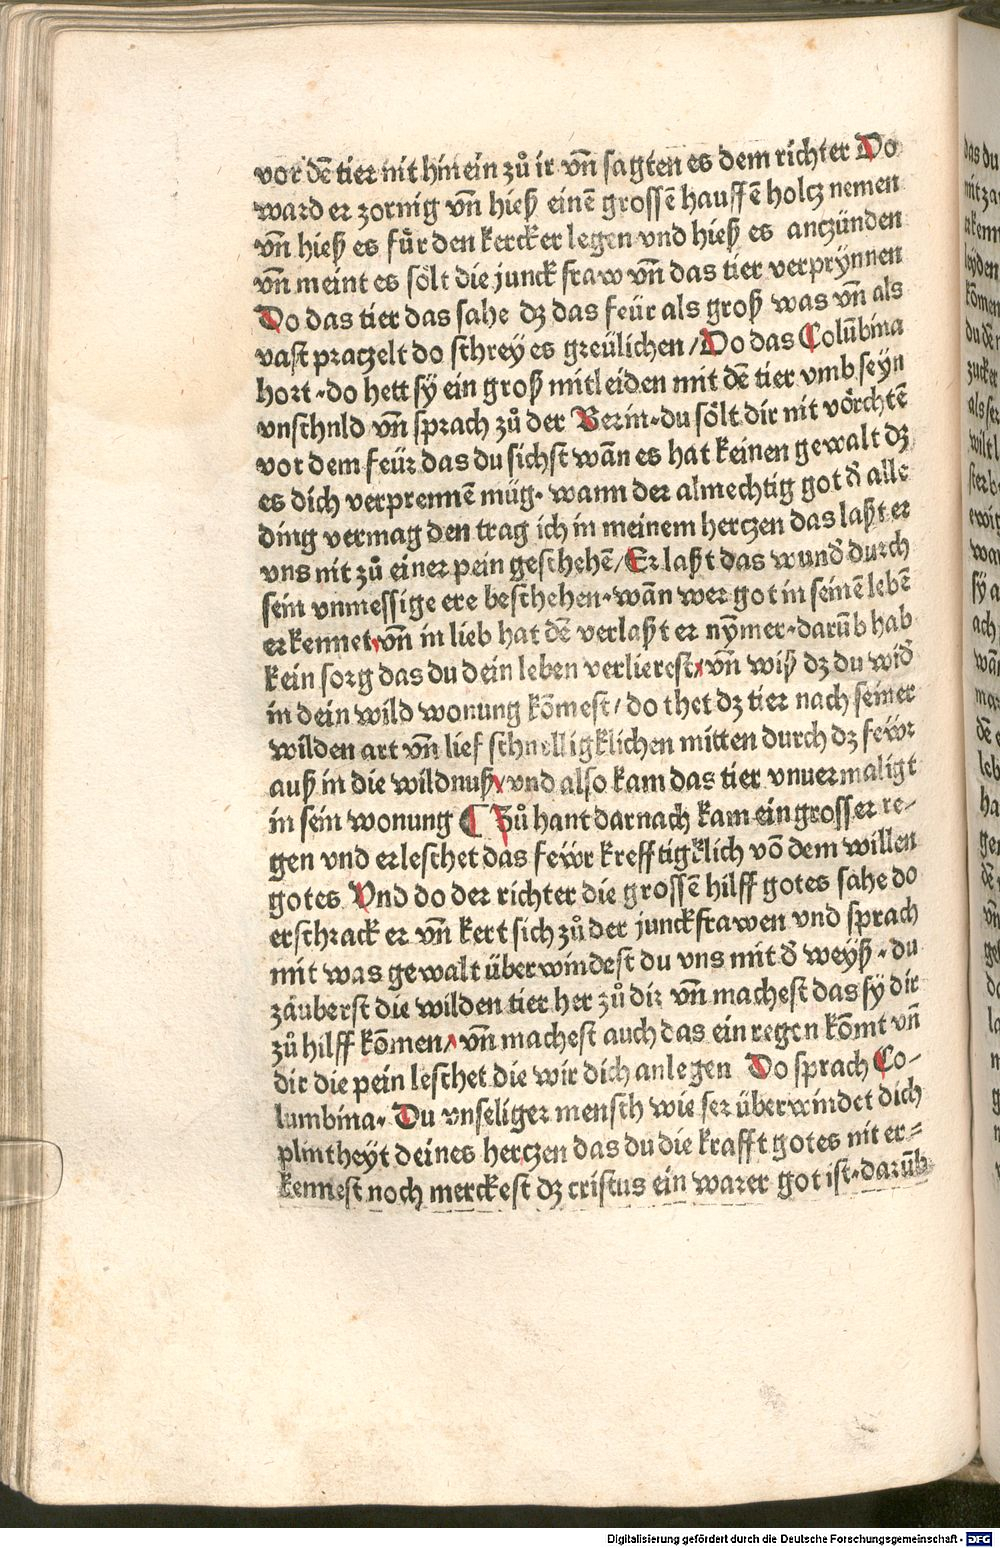 vor dē tier nit hinein zů ir vñ sagten es dem richter Do
ward er zornig vñ hieß einē grossē hauffē holcz nemen
vñ hieß es fůr den kercker legen vnd hieß es anczünden
vñ meint es sölt die junckfraw vñ das tier verprynnen
Do das tier das sahe dz das feür als groß was vñ als
vast praczelt do schrey es greülichen / Do das Colūbina
hort · do hett sÿ ein groß mitleiden mit dē tier vmb seyn
vnschuld vñ sprach zů der Berin · du sölt dir nit vörchtē
vor dem feür das du sichst wān es hat keinen gewalt dz
es dich verprennē müg · wann der almechtig got d̄ alle
ding vermag den trag ich in meinem herczen das laßt er
vns nit zů einer pein geschehē / Er laßt das wund̄ durch
sein vnmessige ere beschehen · wān wer got in seinē lebē
erkennet / vñ in lieb hat dē verlaßt er nȳmer · darūb hab
kein sorg das du dein leben verlierest / vñ wiß dz du wid̄
in dein wild wonung kōmest / do thet dz tier nach seiner
wilden art vñ lief schnelligklichen mitten durch dz fewr
auß in die wildnuß / vnd also kam das tier vnuermaligt
in sein wonung ¶ Zů hant darnach kam ein grosser re-
gen vnd erleschet das fewr krefftigklich vō dem willen
gotes Vnd do der richter die grossē hilff gotes sahe do
erschrack er vñ kert sich zů der junckfrawen vnd sprach
mit was gewalt überwindest du vns mit d̄ weyß · du
zäuberst die wilden tier her zů dir vñ machest das sÿ dir
zů hilff kōmen / vñ machest auch das ein regen kōmt vñ
dir die pein leschet die wir dich anlegen Do sprach Co-
lumbina · Du vnseliger mensch wie ser überwindet dich
plintheyt deines herczen das du die krafft gotes nit er-
kennest noch merckest dz cristus ein warer got ist · darūb
das du
Digitalisierung gefördert durch die Deutsche Forschungsgemeinschaft - DFG